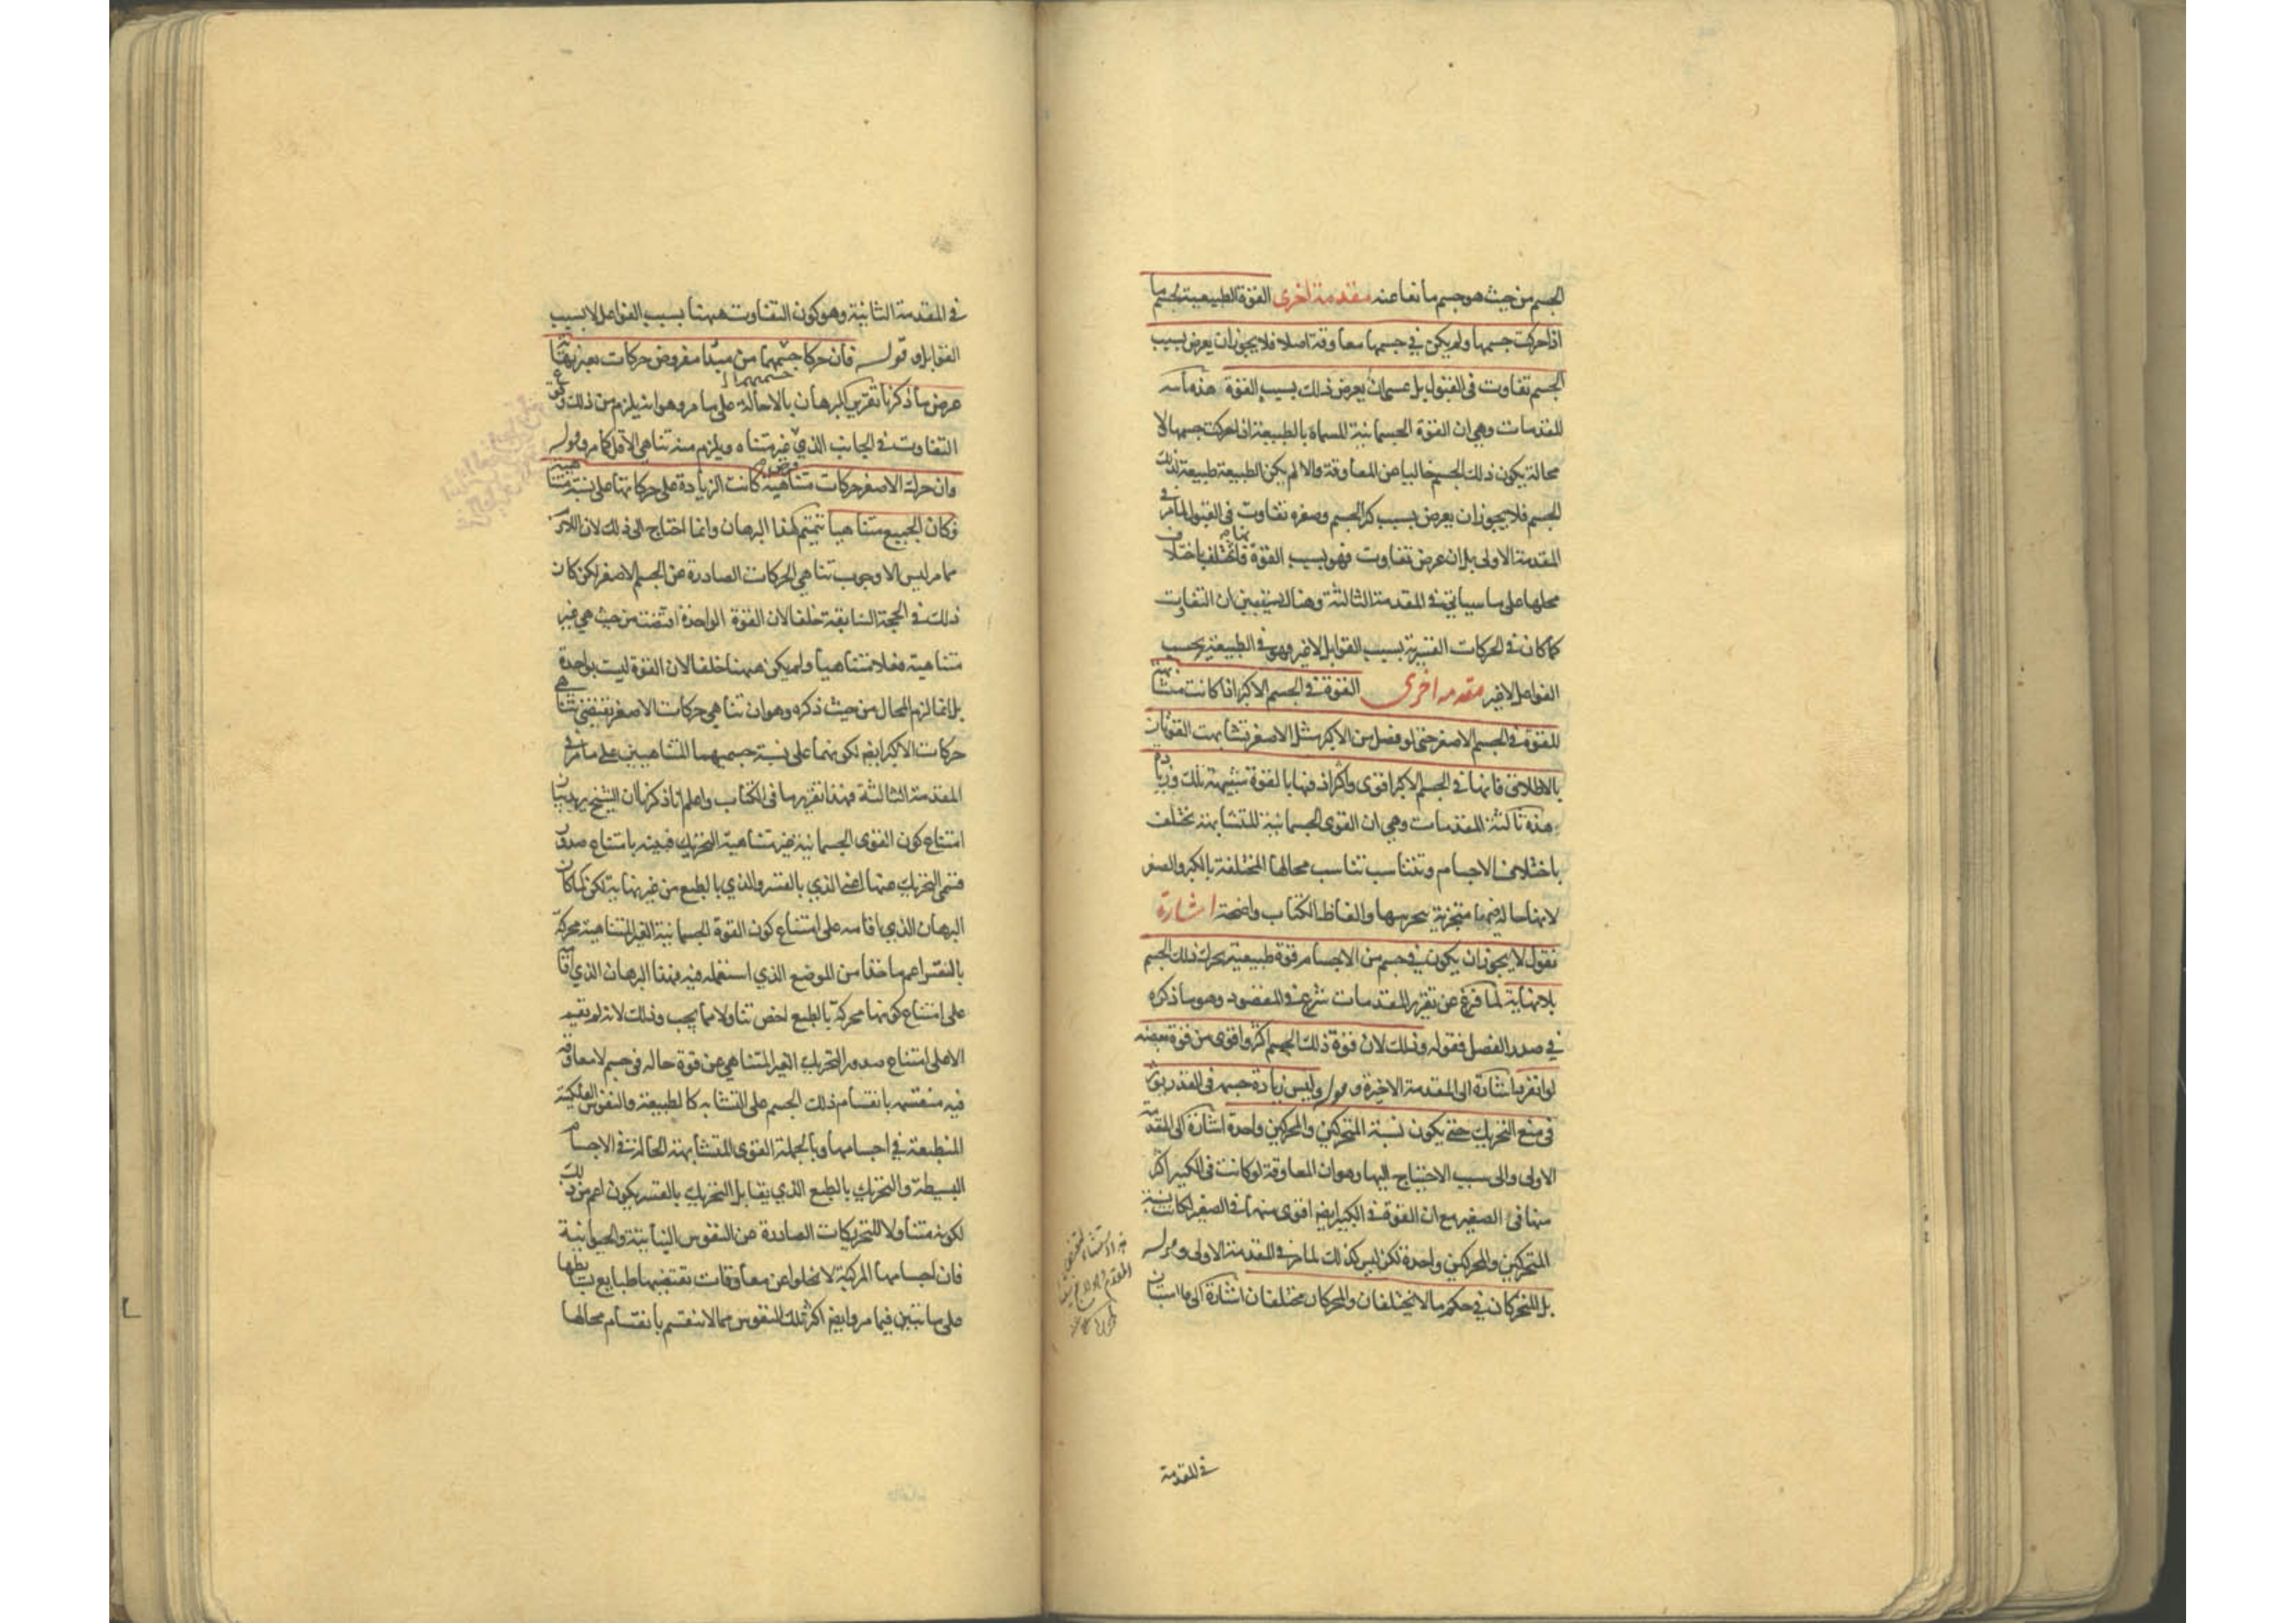 الجسم من حيث هو جسم مانعا عنه مقدمة اخرى القوة الطبيعية لجسم ما
اذا حركت جسمها ولم يكن في جسمها معاوقة اصلا فلا يجوز ان يعرض بسبب
الجسم تفاوت فى القبول بل عسى ان يعرض ذلك بسبب القوة هذه
المقدمات وهى ان القوة الجسمانية المسماة بالطبيعة اذا حركت جسمها لا
محالة يكون ذلك الجسم خاليا عن المعاوقة والا لم يكن الطبيعة طبيعة لذلك
الجسم فلا يجوز ان يعرض بسبب كبر الجسم وصغره تفاوت فى القبول لما مر فى
المقدمة الاولى بل ان عرض تفاوت فهو بسبب القوة فانها تختلف باختلاف
محلها على ما سياتي في المقدمة الثالثة وهناك يتبين ان التفاوت
كما كان في الحركات القسرية بسبب القوابل لا غير فهو في الطبيعية بحسب
الفواعل لا غير مقدمه اخرى القوة في الجسم الاكبر اذا كانت متشابهة
للقوة في الجسم الاصغر حتى لو فصل من الاكبر مثل الاصغر تشابهت القوتان
بالاطلاق فانها في الجسم الاكبر اقوى واكثر اذ فيها بالقوة شبيهة تلك وزيادة
هذه ثالثة المقدمات وهي ان القوى الجسمانية المتشابهة تختلف
باختلاف الاجسام وتتناسب تناسب محالها المختلفة بالكبر والصغر
لانها حالة فيها متجزية بتجزيها والفاظ الكتاب واضحة اشارة
نقول لا يجوز ان يكون في جسم من الاجسام قوة طبيعية يحرك ذلك الجسم
بلا نهاية لما فرغ عن تقرير المقدمات شرع في المقصود وهو ما ذكره
في صدر الفصل فقوله وذلك لان قوة ذلك الجسم اكثر واقوى من قوة بعضه
لو انفرد اشارة الى المقدمة الاخيرة وقوله وليس زيادة جسمه فى القدر يؤثر
فى منع التحريك حتى يكون نسبة المتحركين والمحركين واحدة اشارة الى المقدمة
الاولى والى سبب الاحتياج اليها وهو ان المعاوقة لو كانت فى الكبير اكثر
منها فى الصغير مع ان القوة في الكبير ايضا اقوى منها في الصغير لكانت نسبة
المتحركين والمحركين واحدة لكن ليس كذلك لما مر في المقدمة الاولى وقوله
بل المتحركان في حكم ما لا يختلفان والمحركان مختلفان اشارة الى ما استبان
في المقدمة
في المقدمة الثانية وهو كون التفاوت ههنا بسبب الفواعل لا بسبب
القوابل وقوله فان حركا جسمهما من مبدا مفروض حركات بغير نهاية
عرض ما ذكرنا تقرير البرهان بالاحالة على ما مر وهو انه يلزم من ذلك وقوع
التفاوت في الجانب الذي غير متناه ويلزم منه تناهي الاقل كما مر وقوله
وان حرك الاصغر حركات متناهية كانت الزيادة على حركاتها على نسبة متناهية
فكان الجميع متناهيا تتميم لهذا البرهان وانما احتاج الى ذلك لان اللازم
مما مر ليس الا وجوب تناهي الحركات الصادرة عن الجسم الاصغر لكن كان
ذلك في الحجة السابقة خلفا لان القوة الواحدة اقتضت من حيث هي غير
متناهية فعلا متناهيا ولم يكن ههنا خلفا لان القوة ليست بواحدة
بل انما لزم المحال من حيث ذكره وهو ان تناهي حركات الاصغر تقتضى تناهي
حركات الاكبر ايضا لكونهما على نسبة جسميهما المتناهيين على ما مر في
المقدمة الثالثة فهذا تقرير ما فى الكتاب واعلم انا ذكرنا ان الشيخ يريد بيان
امتناع كون القوى الجسمانية غير متناهية التحريك فبينه بامتناع صدور
قسمى التحريك عنها اعنى الذي بالقسر والذي بالطبع من غير نهاية لكن لما كان
البرهان الذي اقامه على امتناع كون القوة الجسمانية الغير المتناهية محركة
بالقسر اعم ماخذا من الموضع الذي استعمله فيه فهذا البرهان الذي اقامه
على امتناع كونها محركة بالطبع اخص تناولا مما يجب وذلك لانه لم يقم
الا على امتناع صدور التحريك الغير المتناهي عن قوة حاله فى جسم لا معاوقة
فيه منقسمة بانقسام ذلك الجسم على التشابه كالطبيعة والنفوس الفلكية
المنطبعة في اجسامها وبالجملة القوى المتشابهة الحالة في الاجسام
البسيطة والتحريك بالطبع الذي يقابل التحريك بالقسر يكون اعم من ذلك
لكونه متناولا للتحريكات الصادرة عن النفوس النباتية والحيوانية
فان اجسامها المركبة لا تخلوا عن معاوقات تقتضيها طبايع بسايطها
على ما تبين فيما مر وايضا اكثر تلك النفوس مما لا تنقسم بانقسام محالها